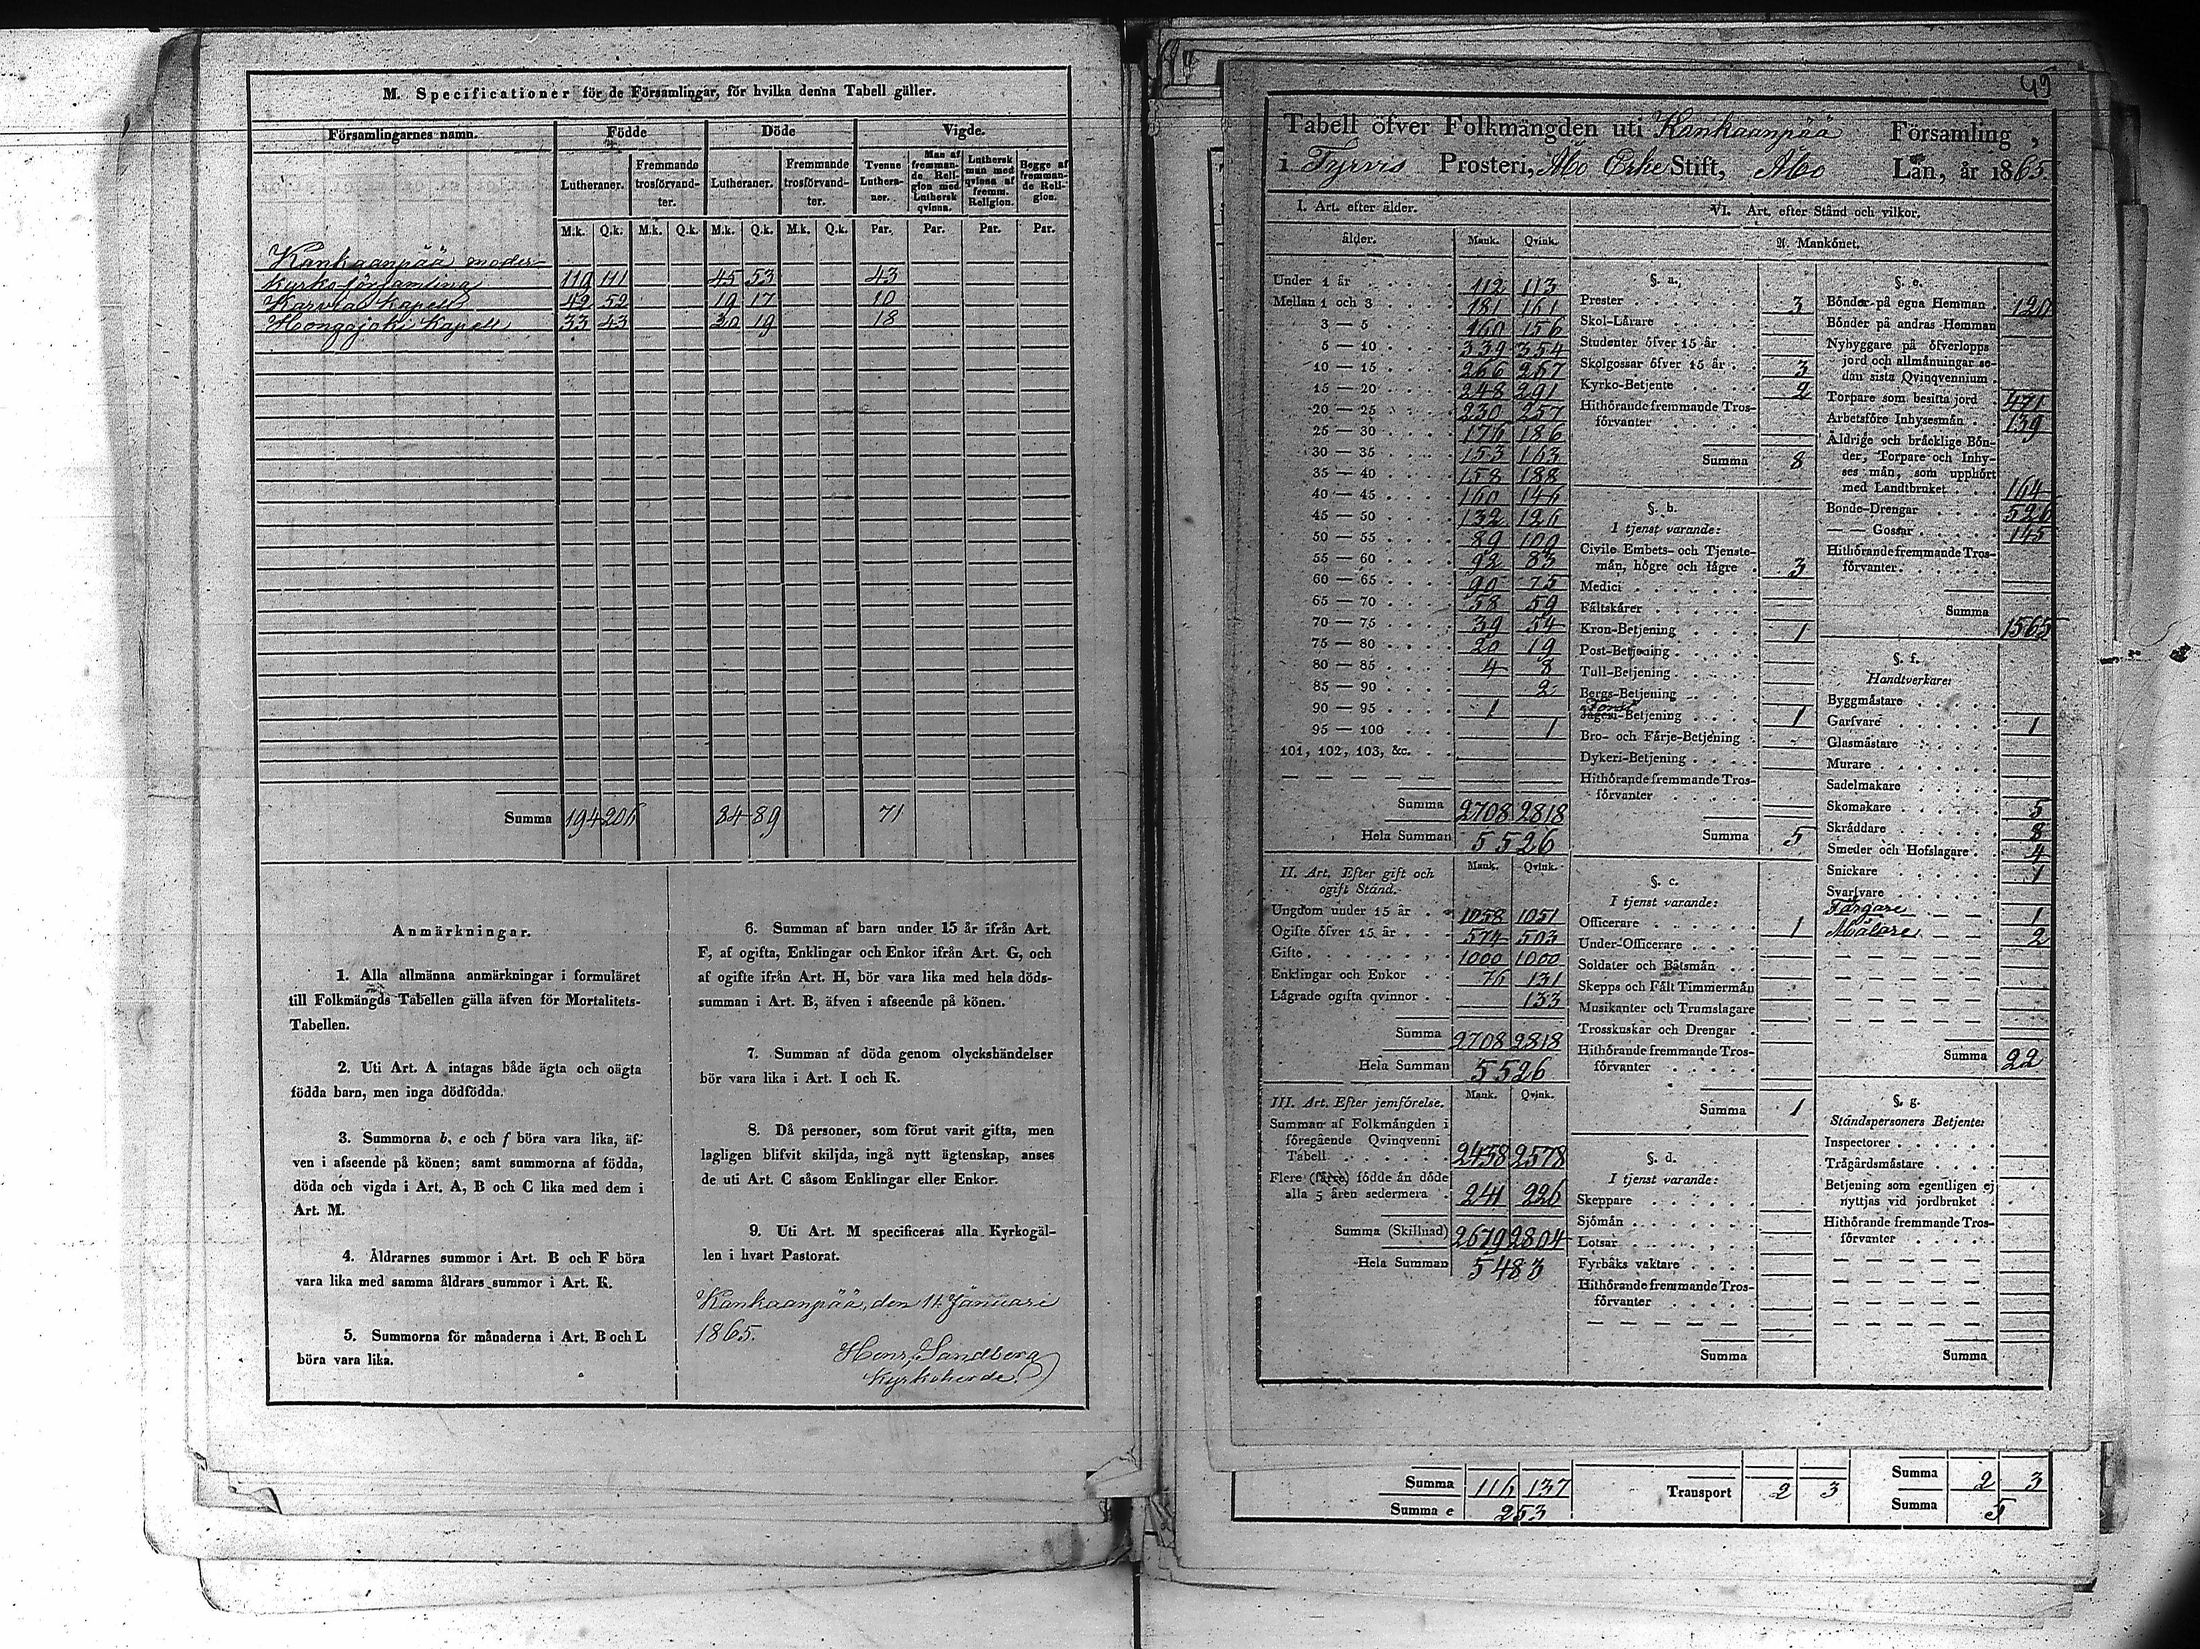 M. Specificationer för de Församlingar, för hvilka denna Tabell gäller.
Församlingarnes namn. Födde Döde Vigde.
Lutheraner. Fremmande trosförvandter. Lutheraner. Fremmande trosförvandter. Tvenne Lutheraner. Man af fremmande Religion med Luthersk qvinna. Luthersk man med qvinna af fremm. Religion. Begge af fremmande Religion.
M.k. Q.k. M.k. Q.k. M.k. Q.k. M.k. Q.k. Par. Par. Par. Par.
Kankaanpää moder-
kyrko-församling 119 111 45 53 43
Karvia Kapell 42 52 19 17 10
Hongojoki Kapell 33 43 20 19 18
Summa 194 206 84 89 71
Anmärkningar.
1. Alla allmänna anmärkningar i formuläret
till Folkmängds Tabellen gälla äfven för Mortalitets-
Tabellen.
2. Uti Art. A intagas både ägta och oägta
födda barn, men inga dödfödda.
3. Summorna b, e och f böra vara lika, äf-
ven i afseende på könen; samt summorna af födda,
döda och vigda i Art. A, B och C lika med dem i
Art. M.
4. Åldrarnes summor i Art. B och F böra
vara lika med samma åldrars summor i Art. K.
5. Summorna för månaderna i Art. B och L
böra vara lika.
6. Summan af barn under 15 år ifrån Art.
F, af ogifta, Enklingar och Enkor ifrån Art. G, och
af ogifte ifrån Art. H, bör vara lika med hela döds-
summan i Art. B, äfven i afseende på könen.
7. Summan af döda genom olyckshändelser
bör vara lika i Art. I och K.
8. Då personer, som förut varit gifta, men
lagligen blifvit skiljda, ingå nytt ägtenskap, anses
de uti Art. C såsom Enklingar eller Enkor.
9. Uti Art. M specificeras alla Kyrkogäl-
len i hvart Pastorat.
Kankaanpää, den 14 Januari
1865.
Henr. Sandberg
Kyrkoherde.
Tabell öfver Folkmängden uti Kankaanpää Församling,
i Tyrvis Prosteri, Åbo Erke Stift, Åbo Län, år 1865.
I. Art. efter ålder.
ålder. Mank. Qvink.
Under 1 år 112 113
Mellan 1 och 3 181 161
3 — 5 160 156
5 — 10 339 354
10 — 15 266 267
15 — 20 248 291
20 — 25 230 257
25 — 30 176 186
30 — 35 153 163
35 — 40 158 188
40 — 45 160 146
45 — 50 132 126
50 — 55 89 100
55 — 60 92 83
60 — 65 90 75
65 — 70 58 59
70 — 75 39 54
75 — 80 20 19
80 — 85 4 8
85 — 90 2
90 — 95 1
95 — 100 1
101, 102, 103, &c.
Summa 2708 2818
Hela Summan 5526
II. Art. Efter gift och ogift Stånd. Mank. Qvink.
Ungdom under 15 år 1058 1051
Ogifte öfver 15 år 574 503
Gifte 1000 1000
Enklingar och Enkor 76 131
Lägrade ogifta qvinnor 133
Summa 2708 2818
Hela Summan 5526
III. Art. Efter jemförelse. Mank. Qvink.
Summan af Folkmängden i
föregående Qvinqvenni
Tabell 2438 2578
Flere (färre) födde än döde
alla 5 åren sedermera 241 226
Summa (Skillnad) 2679 2804
Hela Summan 5483
VI. Art. efter Stånd och vilkor.
A. Mankönet.
§. a.
Prester 3
Skol-Lärare
Studenter öfver 15 år
Skolgossar öfver 15 år 3
Kyrko-Betjente 2
Hithörande fremmande Tros-
förvanter
Summa 8
§. b.
I tjenst varande:
Civile Embets- och Tjenste-
män, högre och lägre 3
Medici
Fältskärer
Kron-Betjening 1
Post-Betjening
Tull-Betjening
Bergs-Betjening
Forst
Jägeri-Betjening 1
Bro- och Färje-Betjening
Dykeri-Betjening
Hithörande fremmande Tros-
förvanter
Summa 5
§. c.
I tjenst varande:
Officerare 1
Under-Officerare
Soldater och Båtsmän
Skepps och Fält Timmermän
Musikanter och Trumslagare
Trosskuskar och Drengar
Hithörande fremmande Tros-
förvanter
Summa 1
§. d.
I tjenst varande:
Skeppare
Sjömän
Lotsar
Fyrbåks vaktare
Hithörande fremmande Tros-
förvanter
Summa
§. e.
Bönder på egna Hemman 120
Bönder på andras Hemman
Nybyggare på öfverlopps
jord och allmänningar se-
dan sista Qvinqvennium
Torpare som besitta jord 471
Arbetsföre Inhysesmän 139
Åldrige och bräcklige Bön-
der, Torpare och Inhy-
ses män, som upphört
med Landtbruket 164
Bonde-Drengar 526
— — Gossar 145
Hithörande fremmande Tros-
förvanter
Summa 1565
§. f.
Handtverkare:
Byggmästare
Garfvare 1
Glasmästare
Murare
Sadelmakare
Skomakare 5
Skräddare 8
Smeder och Hofslagare 4
Snickare 1
Svarfvare
Färgare 1
Målare 2
Summa 22
§. g.
Ståndspersoners Betjente:
Inspectorer
Trägårdsmästare
Betjening som egentligen ej
nyttjas vid jordbruket
Hithörande fremmande Tros-
förvanter
Summa
Summa 116 137 Transport 2 3 Summa 2 3
Summa e 253 Summa 5